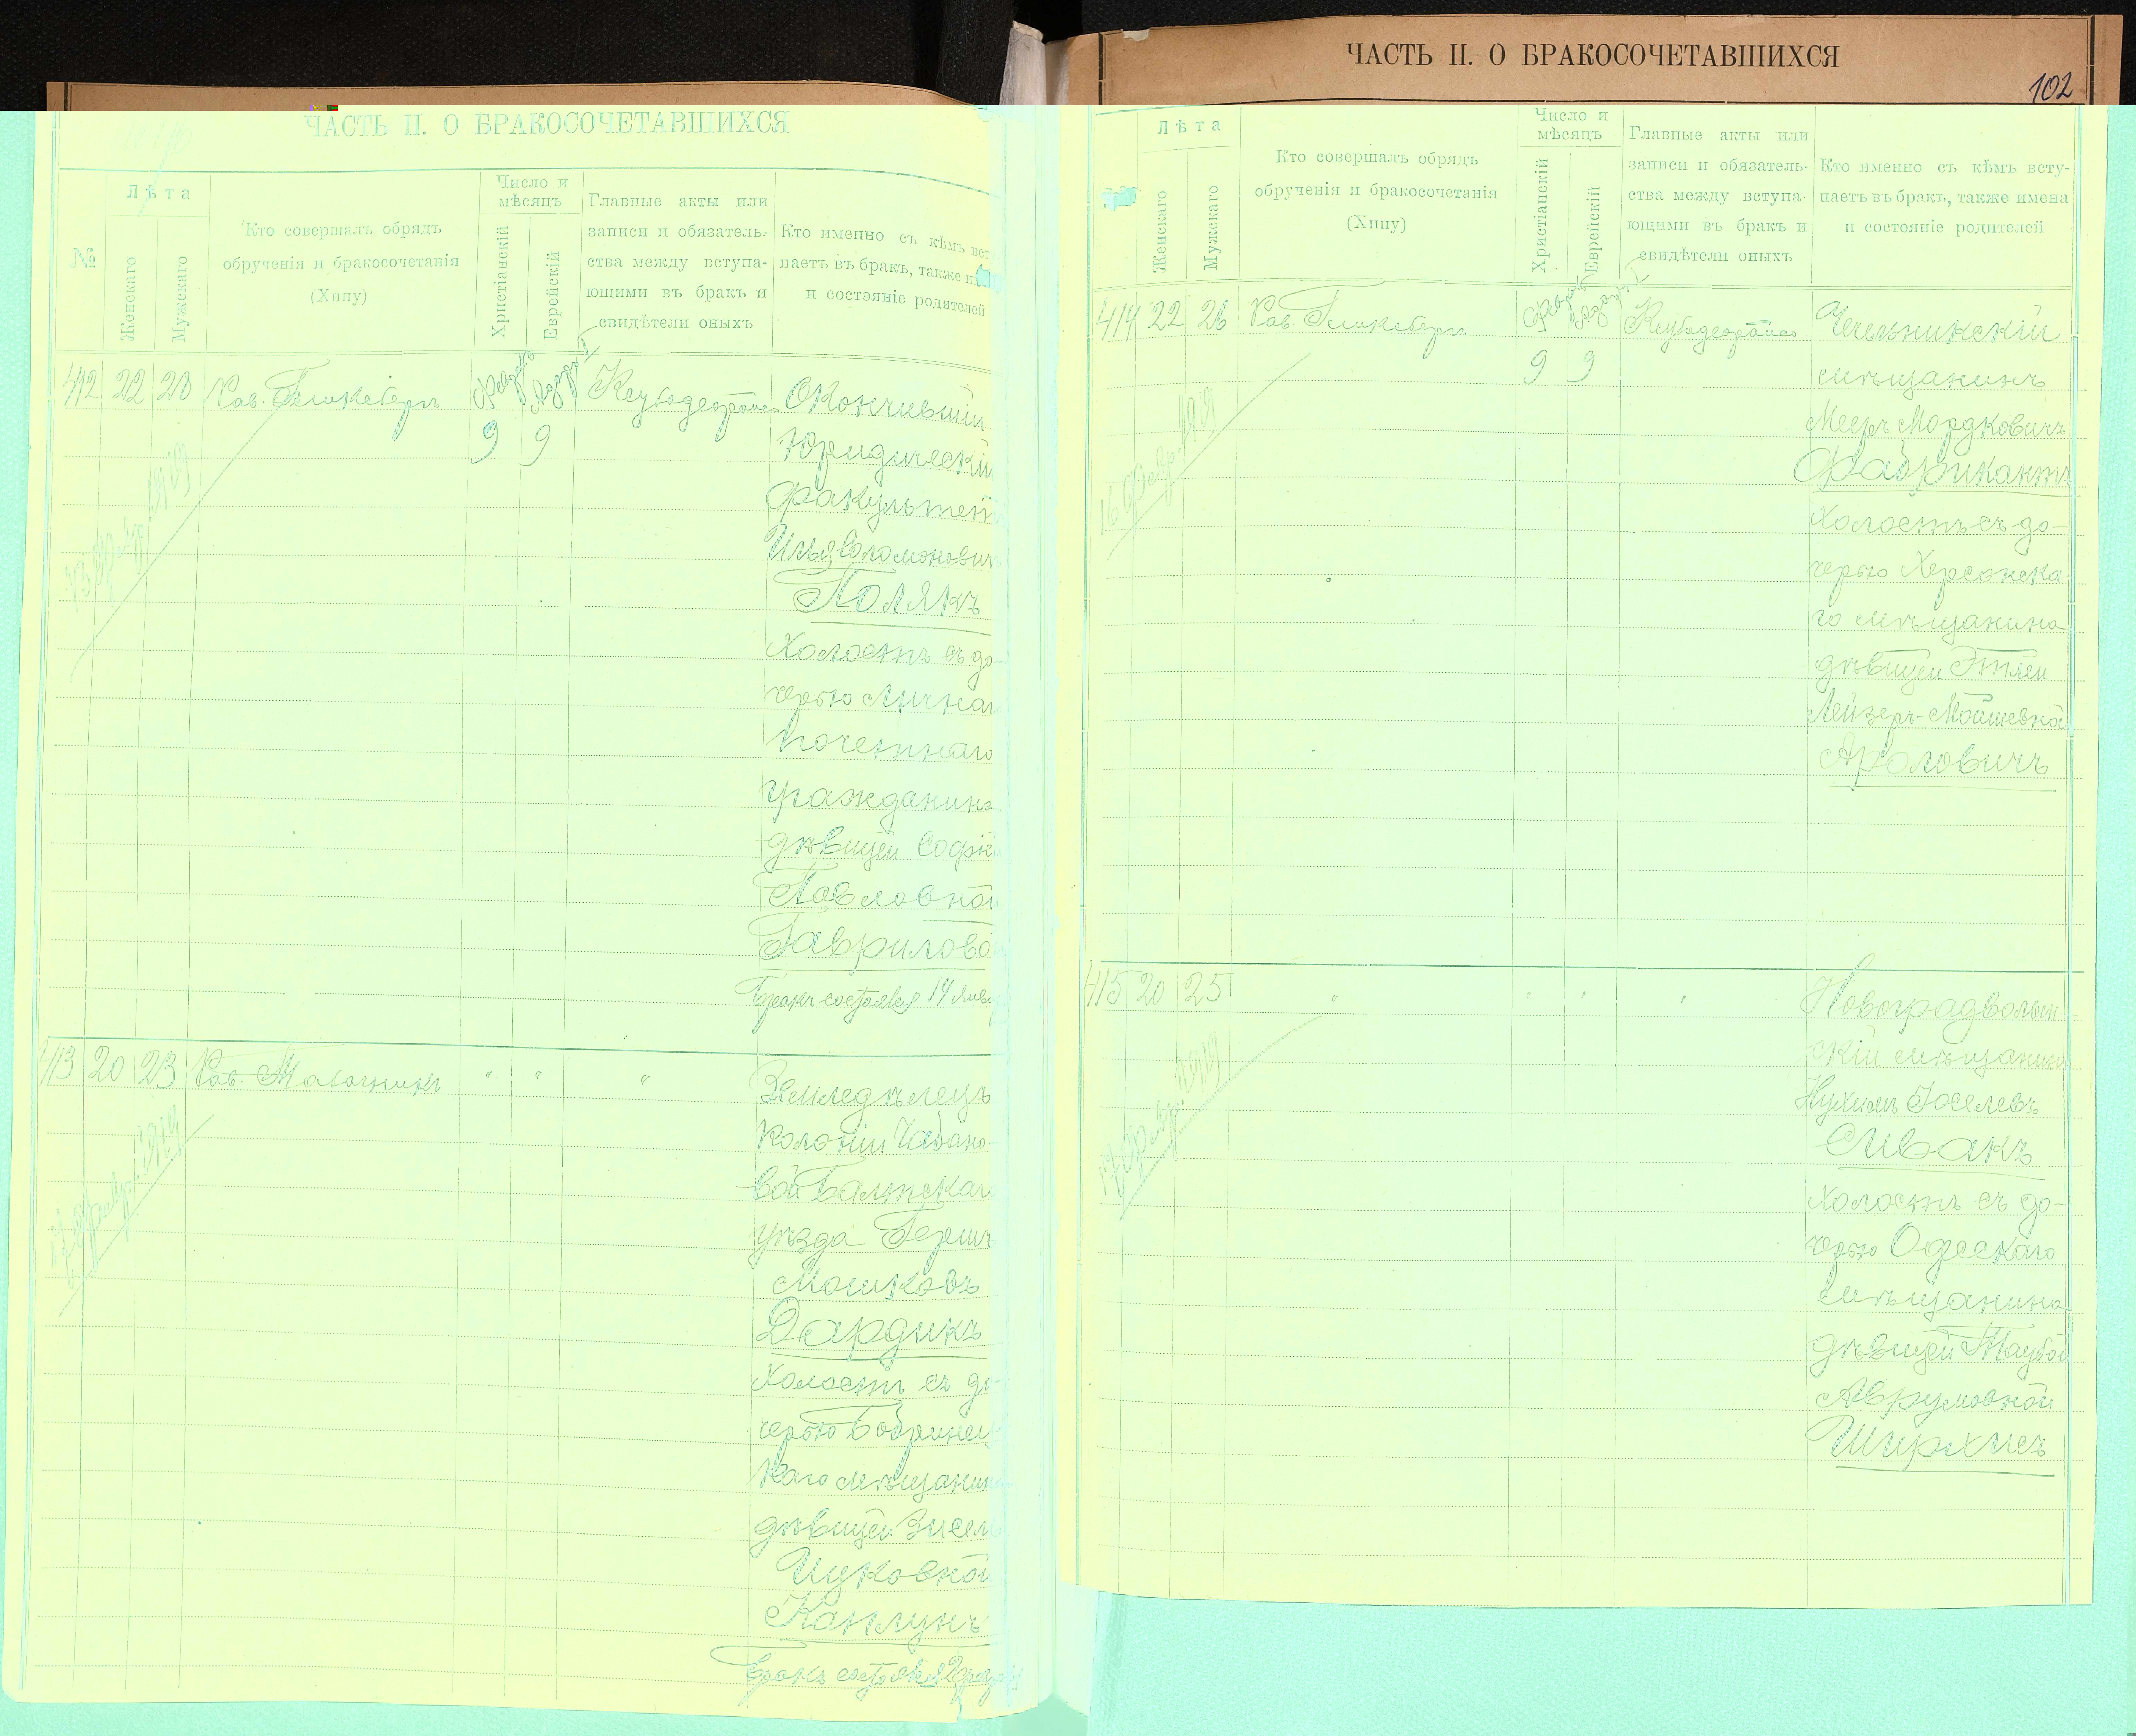 ЧАСТЬ II. О БРАКОСОЧЕТАВШИХСЯ
№
Лѣта
Женскаго
Мужскаго
Кто совершалъ обрядъ
обрученія и бракосочетанія
(Хипу)
Число и
мѣсяцъ
Христіанскій
Еврейскій
Главные акты или
записи и обязатель-
ства между вступа-
ющими въ бракъ и
свидѣтели оныхъ
Кто именно съ кѣмъ вст
паетъ въ бракъ, также и
и состояніе родителей
412 22 23 Рав.
9 9
Окончившій
Юридическій
факультетъ
Илья Соломоновичъ
Полякъ
Холостъ съ до-
черью Личнаго
Почетнаго
гражданина
дѣвицей Софіей
Павловной
Гавриловой
Бракъ состоялся 14 Янв
1919
413 20 23 Рав.
" " "
Земледѣлецъ
Колоніи Чабано-
вой Балтскаго
уѣзда Гершъ
Мошковъ
Дардикъ
Холостъ съ до-
черью Бобринец-
каго мѣщанина
дѣвицей
Ицковной
Каплунъ
Бракъ состоялся 2
1919
ЧАСТЬ II. О БРАКОСОЧЕТАВШИХСЯ
102
Лѣта
Женскаго
Мужскаго
Кто совершалъ обрядъ
обрученія и бракосочетанія
(Хипу)
Число и
мѣсяцъ
Христіанскій
Еврейскій
Главные акты или
записи и обязатель-
ства между вступа-
ющими въ бракъ и
свидѣтели оныхъ
Кто именно съ кѣмъ всту-
паетъ въ бракъ, также имена
и состояніе родителей
414 22 26 Рав.
9 9
Чечельникскій
мѣщанинъ
Мееръ Мордковичъ
Фабрикантъ
Холостъ съ до-
черью Херсонска-
го мѣщанина
дѣвицей Этлей
Лейзеръ-Мошковной
Ароловичъ
16 Фев. 1919
415 20 25 " " " "
Новоградволын-
скій мѣщанинъ
Нухимъ Іоселевъ
Сивакъ
Холостъ съ до-
черью Одесскаго
мѣщанина
дѣвицей Таубой
Аврумовной
Ширхисъ
1919